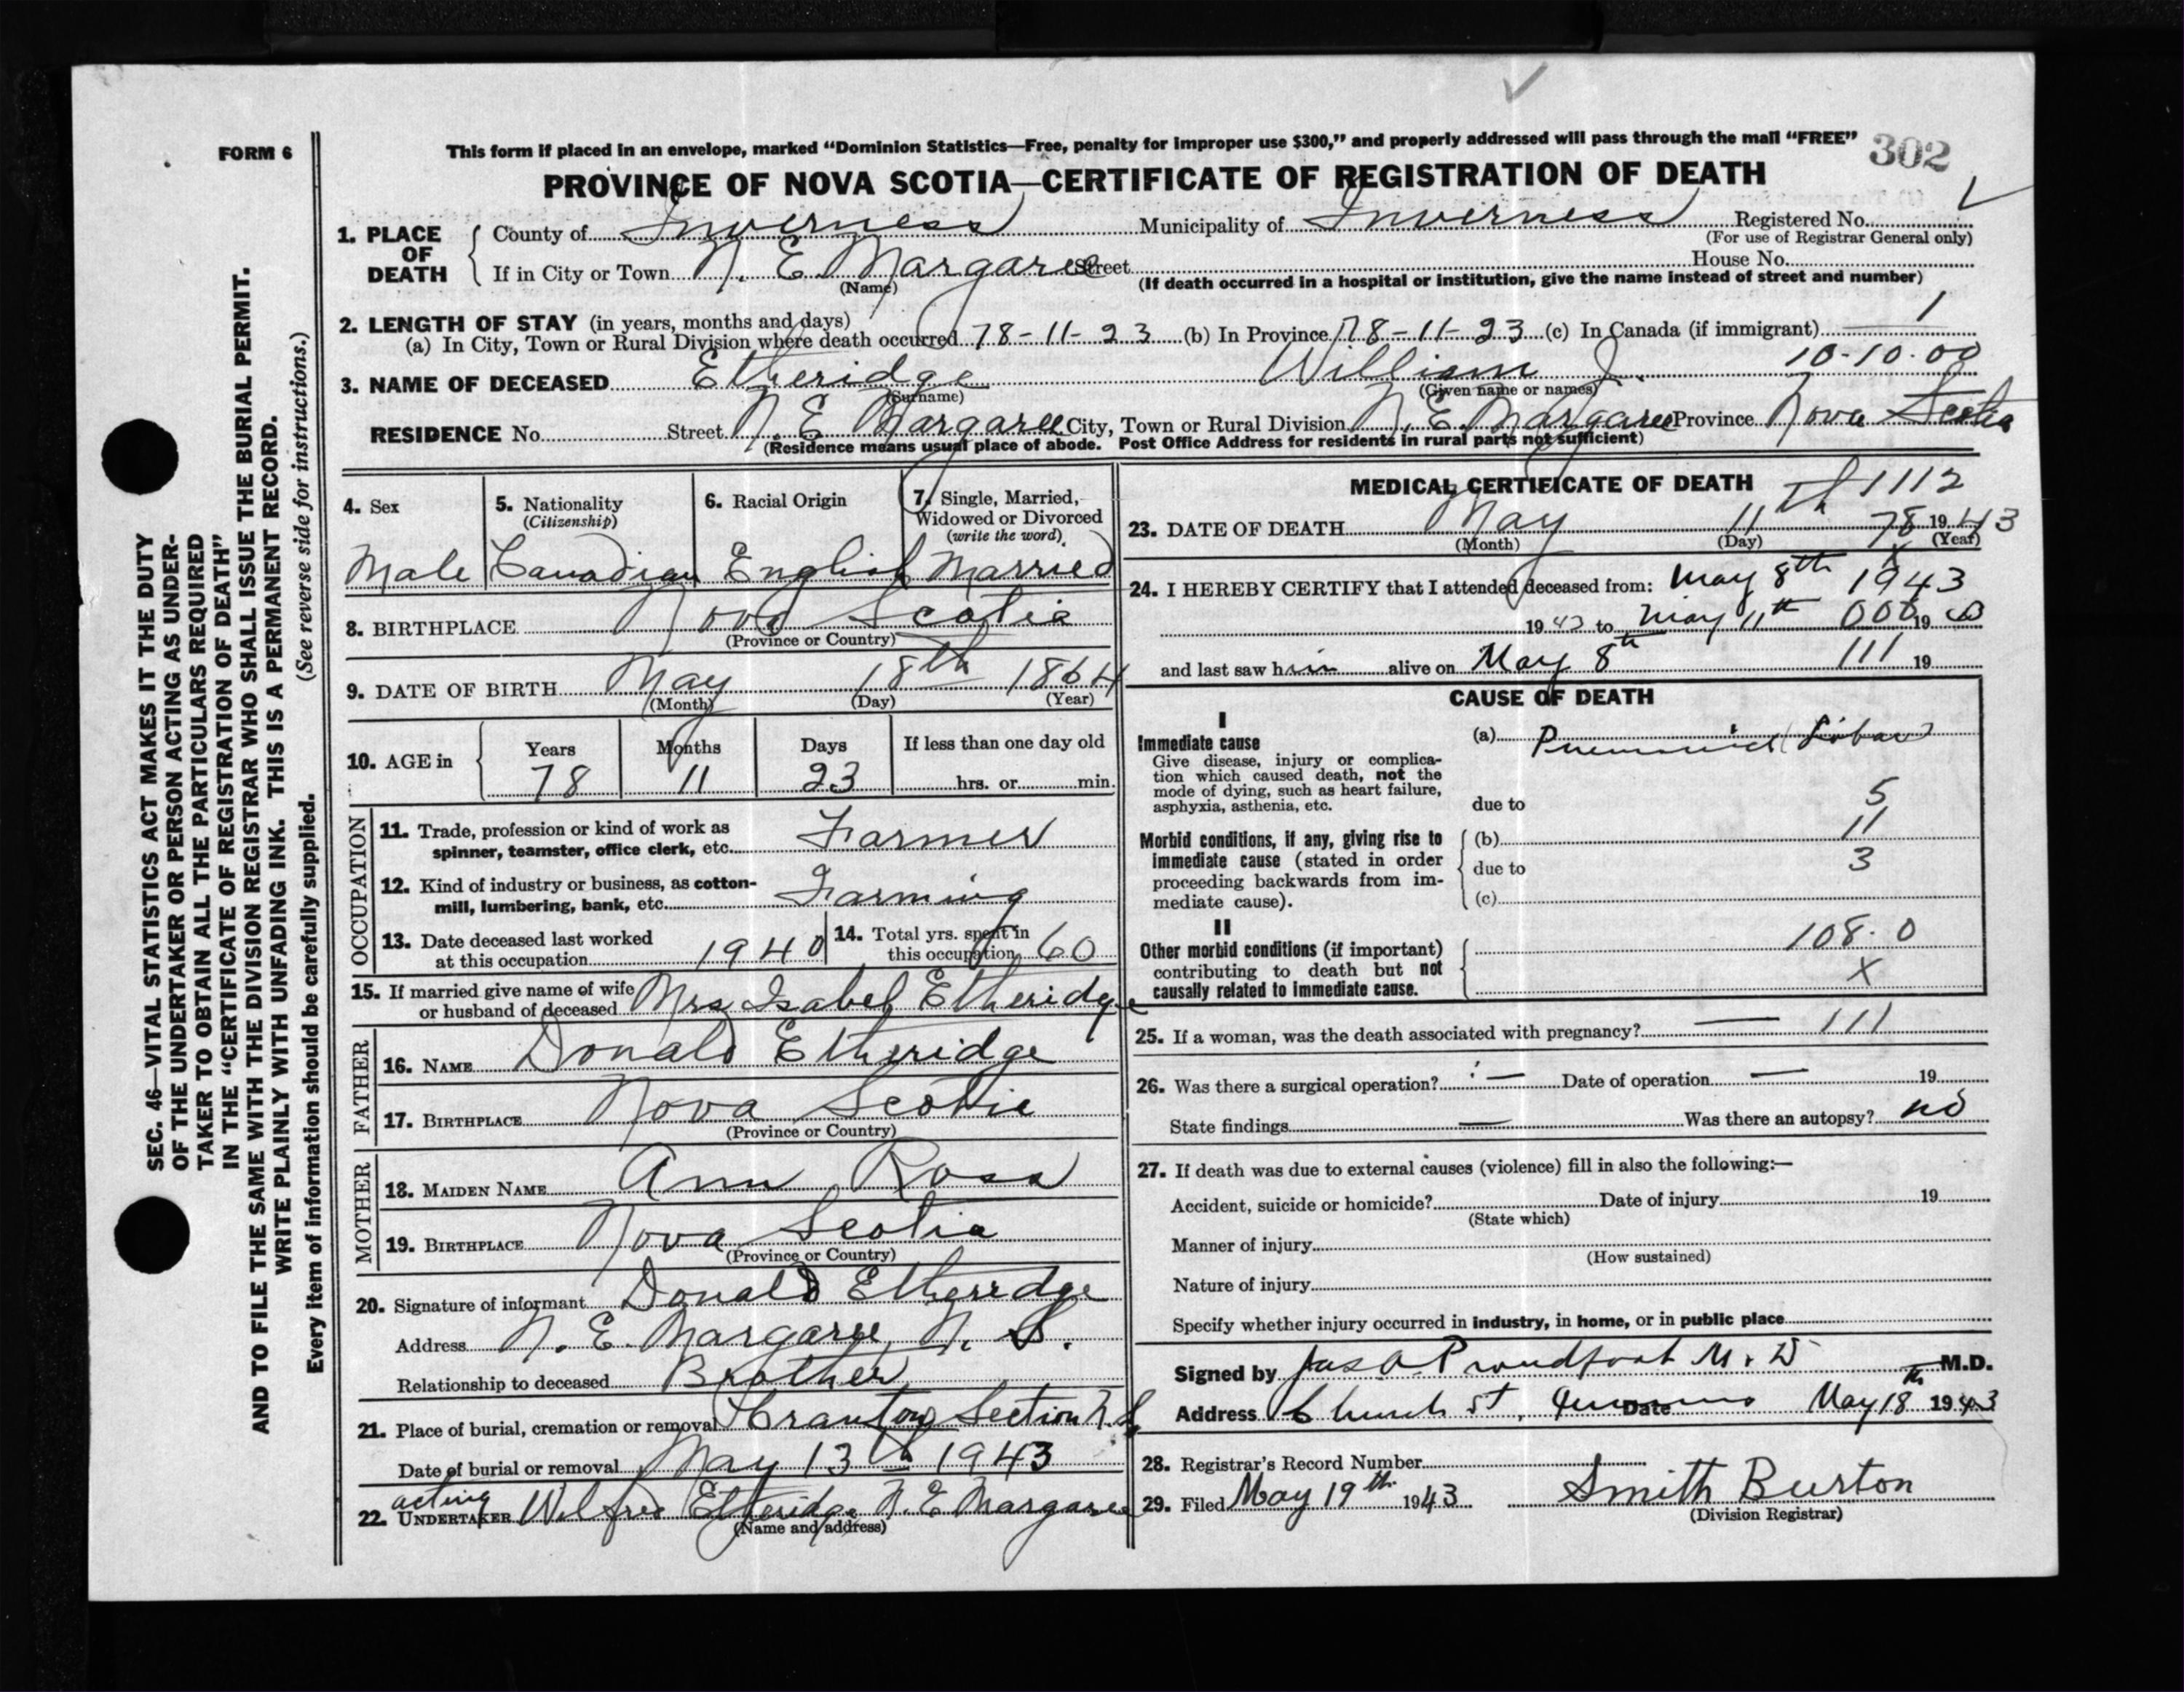 FORM 6
This form if placed in an envelope, marked “Dominion Statistics—Free, penalty for improper use $300,” and properly addressed will pass through the mail “FREE”
302
PROVINCE OF NOVA SCOTIA—CERTIFICATE OF REGISTRATION OF DEATH
SEC. 46—VITAL STATISTICS ACT MAKES IT THE DUTY
OF THE UNDERTAKER OR PERSON ACTING AS UNDER-
TAKER TO OBTAIN ALL THE PARTICULARS REQUIRED
IN THE “CERTIFICATE OF REGISTRATION OF DEATH”
AND TO FILE THE SAME WITH THE DIVISION REGISTRAR WHO SHALL ISSUE THE BURIAL PERMIT.
WRITE PLAINLY WITH UNFADING INK. THIS IS A PERMANENT RECORD.
Every item of information should be carefully supplied. (See reverse side for instructions.)
1. PLACE OF DEATH
County of Inverness Municipality of Inverness Registered No.
(For use of Registrar General only)
If in City or Town N. E. Margaree Street House No.
(Name) (If death occurred in a hospital or institution, give the name instead of street and number)
2. LENGTH OF STAY (in years, months and days)
(a) In City, Town or Rural Division where death occurred 78-11-23 (b) In Province 78-11-23 (c) In Canada (if immigrant) 1
10-10-00
3. NAME OF DECEASED Etheridge William J.
(Surname) (Given name or names)
RESIDENCE No. Street N. E. Margaree City, Town or Rural Division N. E. Margaree Province Nova Scotia
(Residence means usual place of abode. Post Office Address for residents in rural parts not sufficient)
4. Sex
Male
5. Nationality
(Citizenship)
Canadian
6. Racial Origin
English
7. Single, Married,
Widowed or Divorced
(write the word)
Married
8. BIRTHPLACE Nova Scotia
(Province or Country)
9. DATE OF BIRTH May 18th 1864
(Month) (Day) (Year)
10. AGE in Years Months Days If less than one day old
78 11 23 hrs. or min.
OCCUPATION
11. Trade, profession or kind of work as
spinner, teamster, office clerk, etc. Farmer
12. Kind of industry or business, as cotton-
mill, lumbering, bank, etc. Farming
13. Date deceased last worked
at this occupation 1940
14. Total yrs. spent in
this occupation 60
15. If married give name of wife
or husband of deceased Mrs Isabel Etheridge
FATHER
16. NAME Donald Etheridge
17. BIRTHPLACE Nova Scotia
(Province or Country)
MOTHER
18. MAIDEN NAME Ann Ross
19. BIRTHPLACE Nova Scotia
(Province or Country)
20. Signature of informant Donald Etheridge
Address N. E. Margaree, N. S.
Relationship to deceased Brother
21. Place of burial, cremation or removal Cranton Section N.S.
Date of burial or removal May 13th 1943
acting
22. UNDERTAKER Wilfred Etheridge N. E Margaree
(Name and address)
MEDICAL CERTIFICATE OF DEATH 1112
23. DATE OF DEATH May 11th 78 1943
(Month) (Day) (Year)
X
24. I HEREBY CERTIFY that I attended deceased from: May 8th 1943
1943 to May 11th 000 19
and last saw him alive on May 8th 111 19
CAUSE OF DEATH
I
Immediate cause
Give disease, injury or complica-
tion which caused death, not the
mode of dying, such as heart failure,
asphyxia, asthenia, etc.
(a) Pneumonia (Lobar)
due to 5
Morbid conditions, if any, giving rise to
immediate cause (stated in order
proceeding backwards from im-
mediate cause).
(b) 11
due to 3
(c)
II
Other morbid conditions (if important)
contributing to death but not
causally related to immediate cause.
108. 0
X
25. If a woman, was the death associated with pregnancy? — 111
26. Was there a surgical operation? — Date of operation — 19
State findings — Was there an autopsy? no
27. If death was due to external causes (violence) fill in also the following:—
Accident, suicide or homicide? Date of injury 19
(State which)
Manner of injury
(How sustained)
Nature of injury
Specify whether injury occurred in industry, in home, or in public place
Signed by Jas A. Proudfoot M. D M.D.
Address Church St, Date May 18th 1943
28. Registrar's Record Number
29. Filed May 19th 1943 Smith Burton
(Division Registrar)